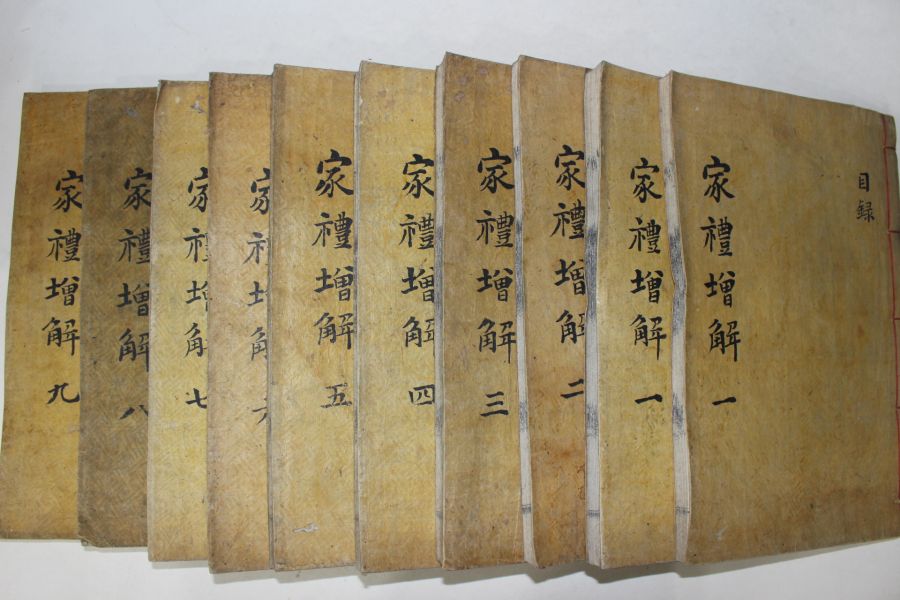 目録
家禮增解 一
家禮增解 一
家禮增解 二
家禮增解 三
家禮增解 四
家禮增解 五
家禮增解 六
家禮增解 七
家禮增解 八
家禮增解 九